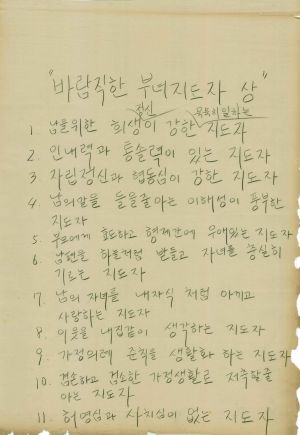 "바람직한 부녀지도자 상"
정신 묵묵히 일하는
1. 남을위한 희생이 강한 지도자
2. 인내력과 통솔력이 있는 지도자
3. 자립정신과 협동심이 강한 지도자
4. 남의말을 들을줄아는 이해성이 풍부한
지도자
5. 부모에게 효도하고 형제간에 우애있는 지도자
6. 남편을 하늘처럼 받들고 자녀를 충실히
기르는 지도자
7. 남의 자녀를 내자식 처럼 아끼고
사랑하는 지도자
8. 이웃을 내집같이 생각하는 지도자
9. 가정의례 준칙을 생활화 하는 지도자
10. 겸손하고 검소한 가정생활로 저축할줄
아는 지도자
11. 허영심과 사치심이 없는 지도자